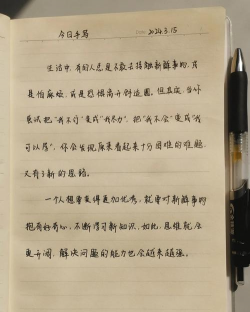 今日手写
2024.3.15
生活中，有的人总是不敢去接触新鲜事物，或
是怕麻烦，或是恐惧离开舒适圈。但其实，当你
尝试把“我不行”变成“我尽力”，把“我不会”变成“我
可以学”，你会发现原来看起来十分困难的难题，
又有了新的思路。
一个人想要变得更加优秀，就要对新鲜事物
抱有好奇心，不断学习新知识，如此，思维就会
更开阔，解决问题的能力也会越来越强。